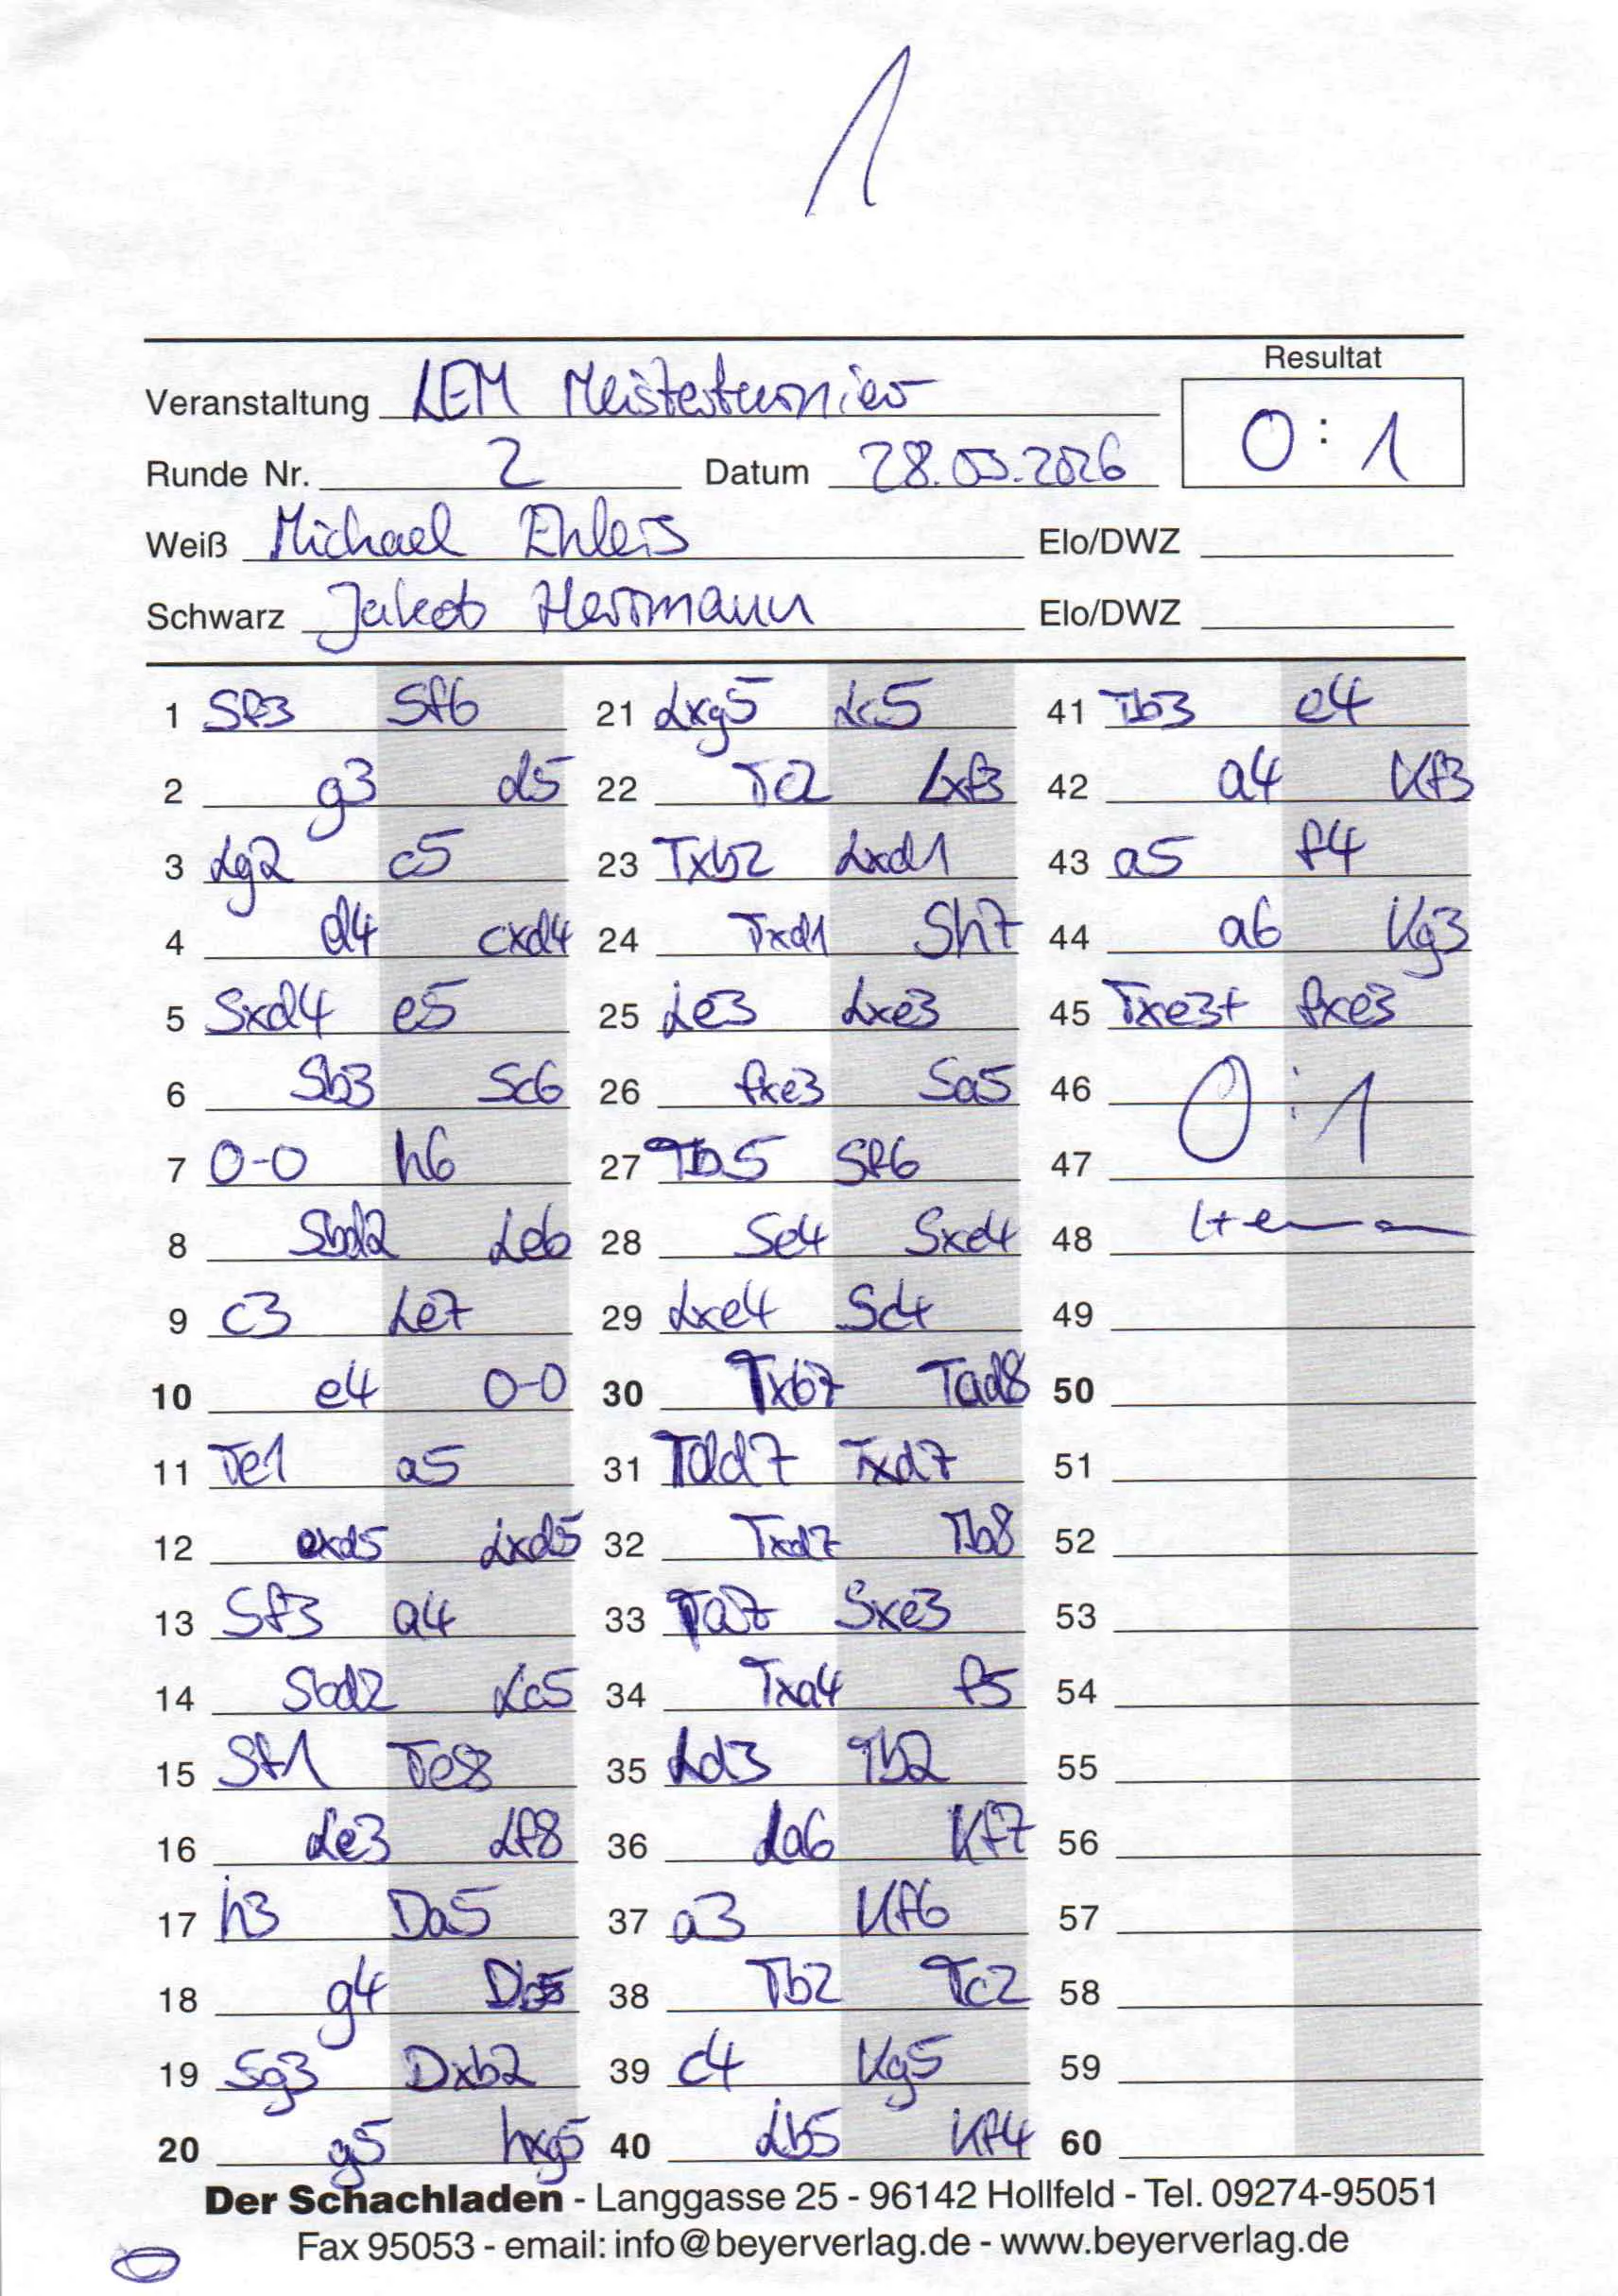 1
Resultat
Veranstaltung LEM Meisterturnier
0 : 1
Runde Nr. 2 Datum 28.03.2026
Weiß Michael Ehlers Elo/DWZ
Schwarz Jakob Herrmann Elo/DWZ
1 Sf3 Sf6
2 g3 d5
3 Lg2 c5
4 d4 cxd4
5 Sxd4 e5
6 Sb3 Sc6
7 0-0 h6
8 Sbd2 Le6
9 c3 Le7
10 e4 0-0
11 Te1 a5
12 exd5 Lxd5
13 Sf3 a4
14 Sbd2 Lc5
15 Sf1 Te8
16 Le3 Lf8
17 h3 Da5
18 g4
19 Sg3 Dxb2
20 g5 hxg5
21 Lxg5 Lc5
22 Tc2 Lxf3
23 Txb2 Lxd1
24 Txd1 Sh7
25 Le3 Lxe3
26 fxe3 Sa5
27 Tb5 Sf6
28 Se4 Sxe4
29 Lxe4 Sc4
30 Txb7 Tad8
31 Tdd7 Txd7
32 Txd7 Tb8
33 Ta7 Sxe3
34 Txa4 f5
35 Ld3 Tb2
36 La6 Kf7
37 a3 Kf6
38 Tb2 Tc2
39 c4 Kg5
40 Lb5 Kf4
41 Tb3 e4
42 a4 Kf3
43 a5 f4
44 a6 Kg3
45 Txe3+ fxe3
46 0:1
47
48
49
50
51
52
53
54
55
56
57
58
59
60
Der Schachladen - Langgasse 25 - 96142 Hollfeld - Tel. 09274-95051
Fax 95053 - email: info@beyerverlag.de - www.beyerverlag.de